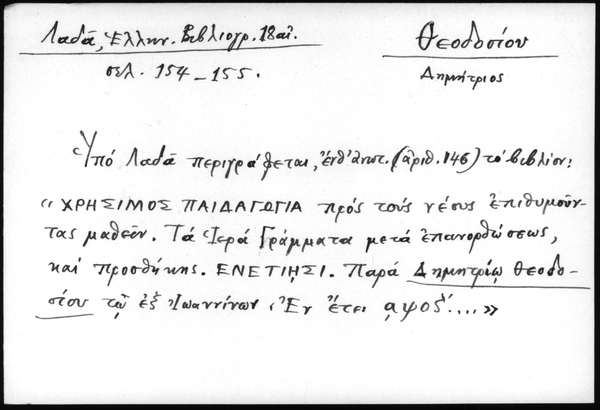 Λαδᾶ, Ἑλλην. Βιβλιογρ. 18 αἰ.
σελ. 154-155.
Θεοδοσίου
Δημήτριος
Ὑπό Λαδᾶ περιγράφεται, ἐνθ' ἀνωτ. (ἀριθ. 146) τό βιβλίον:
«ΧΡΗΣΙΜΟΣ ΠΑΙΔΑΓΩΓΙΑ πρός τούς νέους ἐπιθυμοῦν-
τας μαθεῖν. Τά Ἱερά Γράμματα μετά ἐπανορθώσεως,
καί προσθήκης. ΕΝΕΤΙΗΣΙ. Παρά Δημητρίῳ Θεοδο-
σίου τῷ ἐξ Ἰωαννίνων. Ἐν ἔτει αψοδ'....»